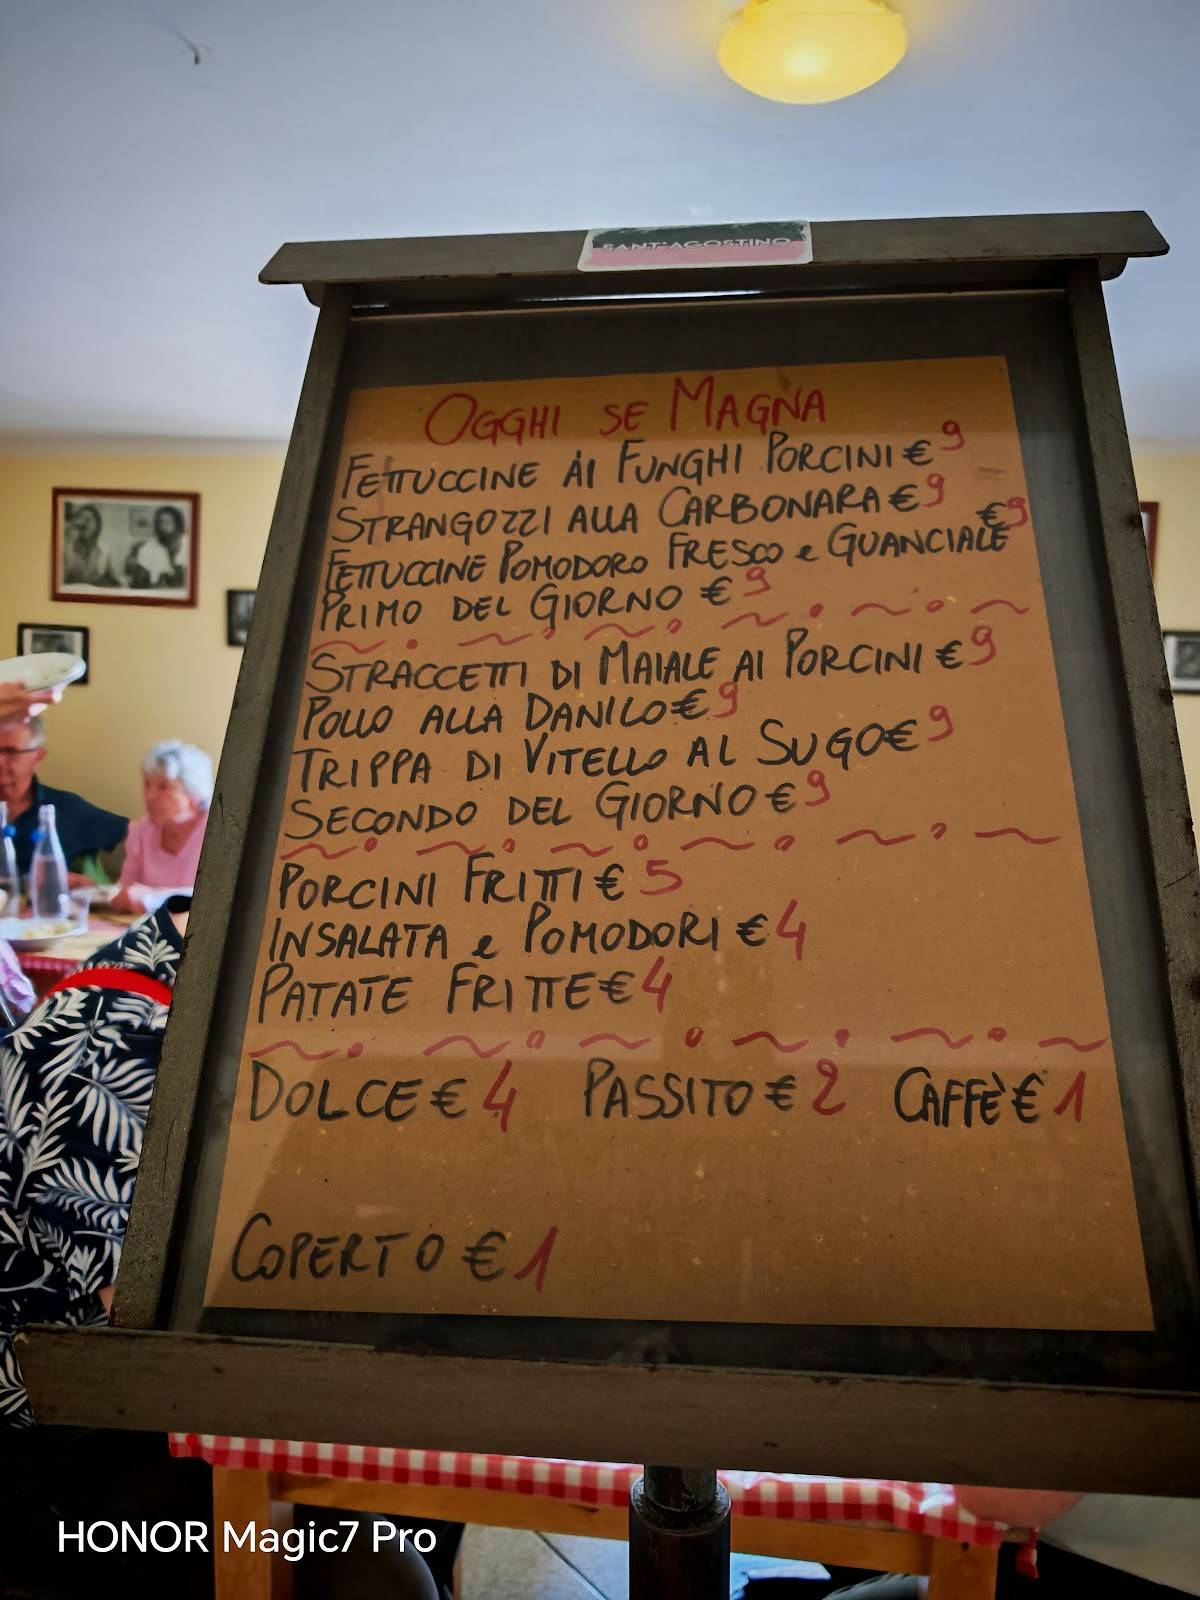 SANT'AGOSTINO
OGGHI SE MAGNA
FETTUCCINE AI FUNGHI PORCINI € 9
STRANGOZZI ALLA CARBONARA € 9
FETTUCCINE POMODORO FRESCO e GUANCIALE € 9
PRIMO DEL GIORNO € 9
STRACCETTI DI MAIALE AI PORCINI € 9
POLLO ALLA DANILO € 9
TRIPPA DI VITELLO AL SUGO € 9
SECONDO DEL GIORNO € 9
PORCINI FRITTI € 5
INSALATA e POMODORI € 4
PATATE FRITTE € 4
DOLCE € 4 PASSITO € 2 CAFFÈ € 1
COPERTO € 1
HONOR Magic7 Pro